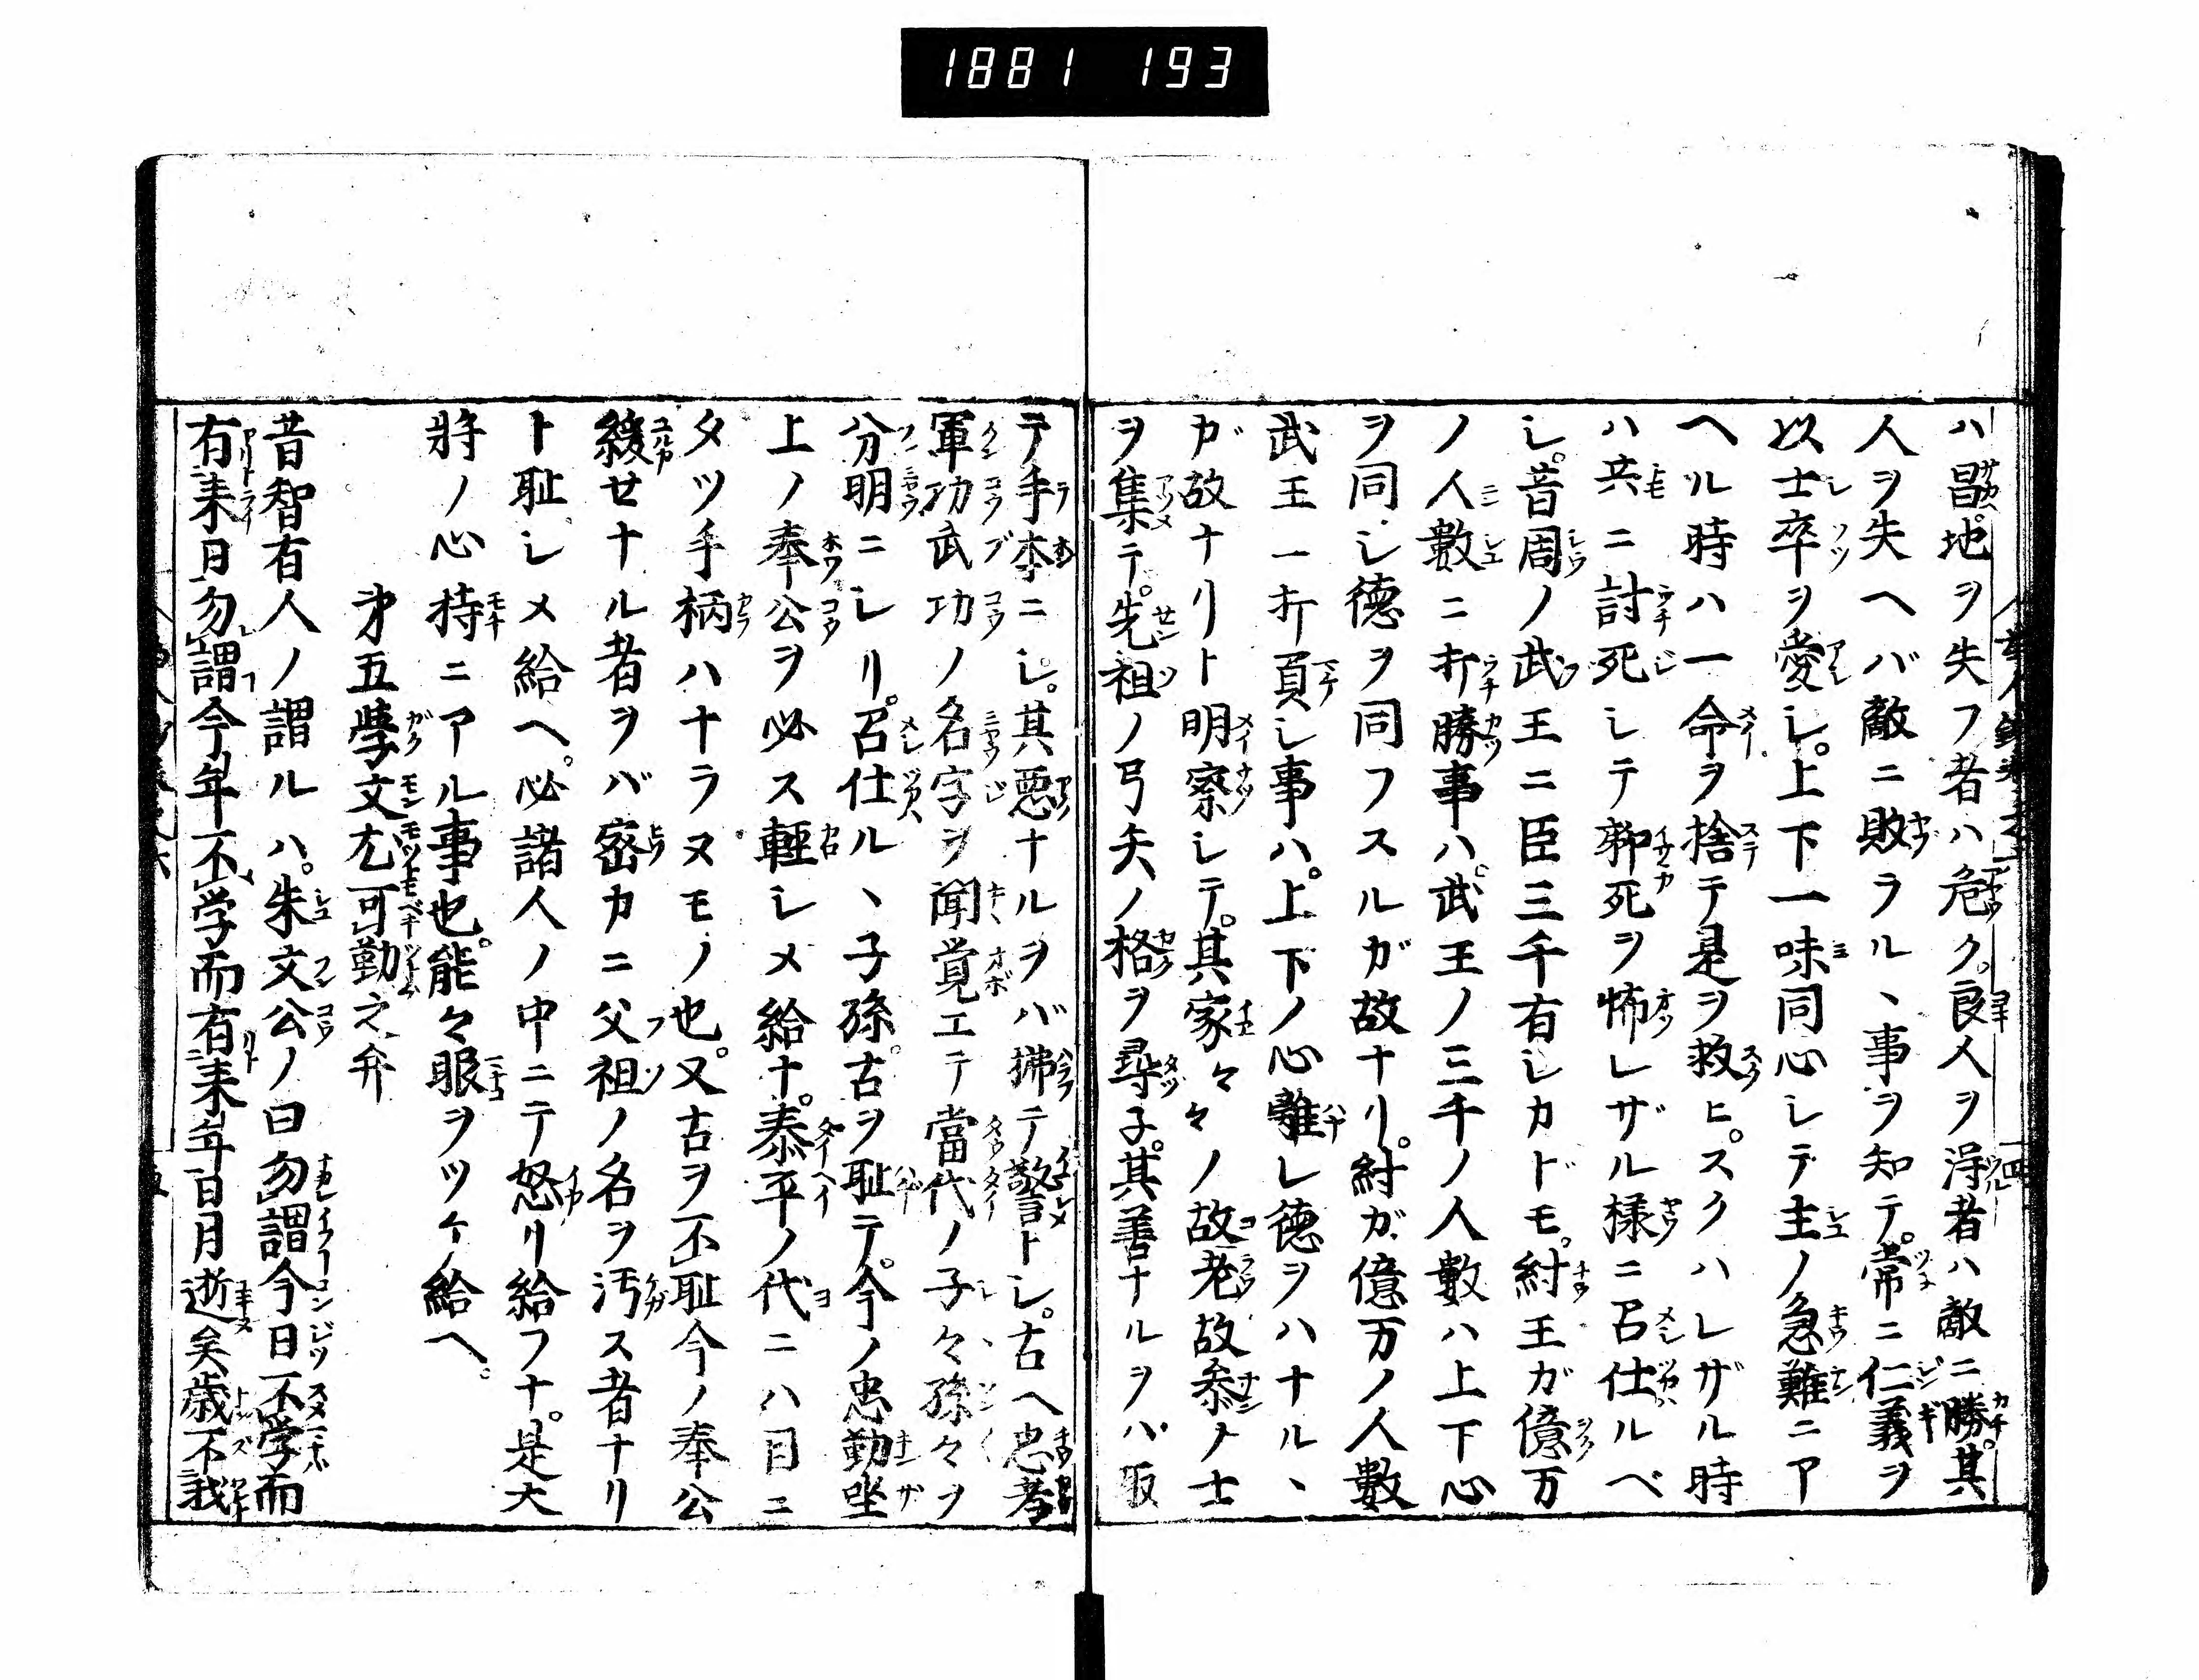 1881 193
ハ昌。地ヲ失フ者ハ危ク。良人ヲ得者ハ敵ニ勝。其
人ヲ失ヘバ敵ニ敗ラル、事ヲ知テ。常ニ仁義ヲ
以士卒ヲ愛シ。上下一味同心シテ主ノ急難ニア
ヘル時ハ一命ヲ捨テ是ヲ救ヒ。スクハレザル時
ハ共ニ討死シテ聊死ヲ怖レザル様ニ召仕ルベ
シ。昔周ノ武王ニ臣三千有シカドモ。紂王ガ億万
ノ人數ニ打勝事ハ。武王ノ三千ノ人數ハ上下心
ヲ同シ徳ヲ同フスルガ故ナリ。紂ガ億万ノ人數
武王一打負シ事ハ。上下ノ心離レ徳ヲハナル、
ガ故ナリト明察シテ。其家々々ノ故老故参ノ士
ヲ集テ。先祖ノ弓矢ノ格ヲ尋子。其善ナルヲハ取
テ手本ニシ。其悪ナルヲバ拂テ警トシ。古ヘ忠孝
軍功武功ノ名字ヲ聞覚エテ當代ノ子々孫々ヲ
分明ニシリ。召仕ル、子孫。古ヲ恥テ。今ノ忠勤坐
上ノ奉公ヲ必ス軽シメ給ナ。泰平ノ代ニハ目ニ
タツ手柄ハナラヌモノ也。又古ヲ不恥今ノ奉公
緩セナル者ヲバ密カニ父祖ノ名ヲ汚ス者ナリ
ト恥シメ給ヘ。必諸人ノ中ニテ怒リ給フナ。是大
將ノ心持ニアル事也。能々眼ヲツケ給ヘ。
第五學文尤可勤之弁
昔智有人ノ謂ルハ。朱文公ノ曰勿謂今日不学而
有来日勿謂今年不学而有来年日月逝矣歳不我